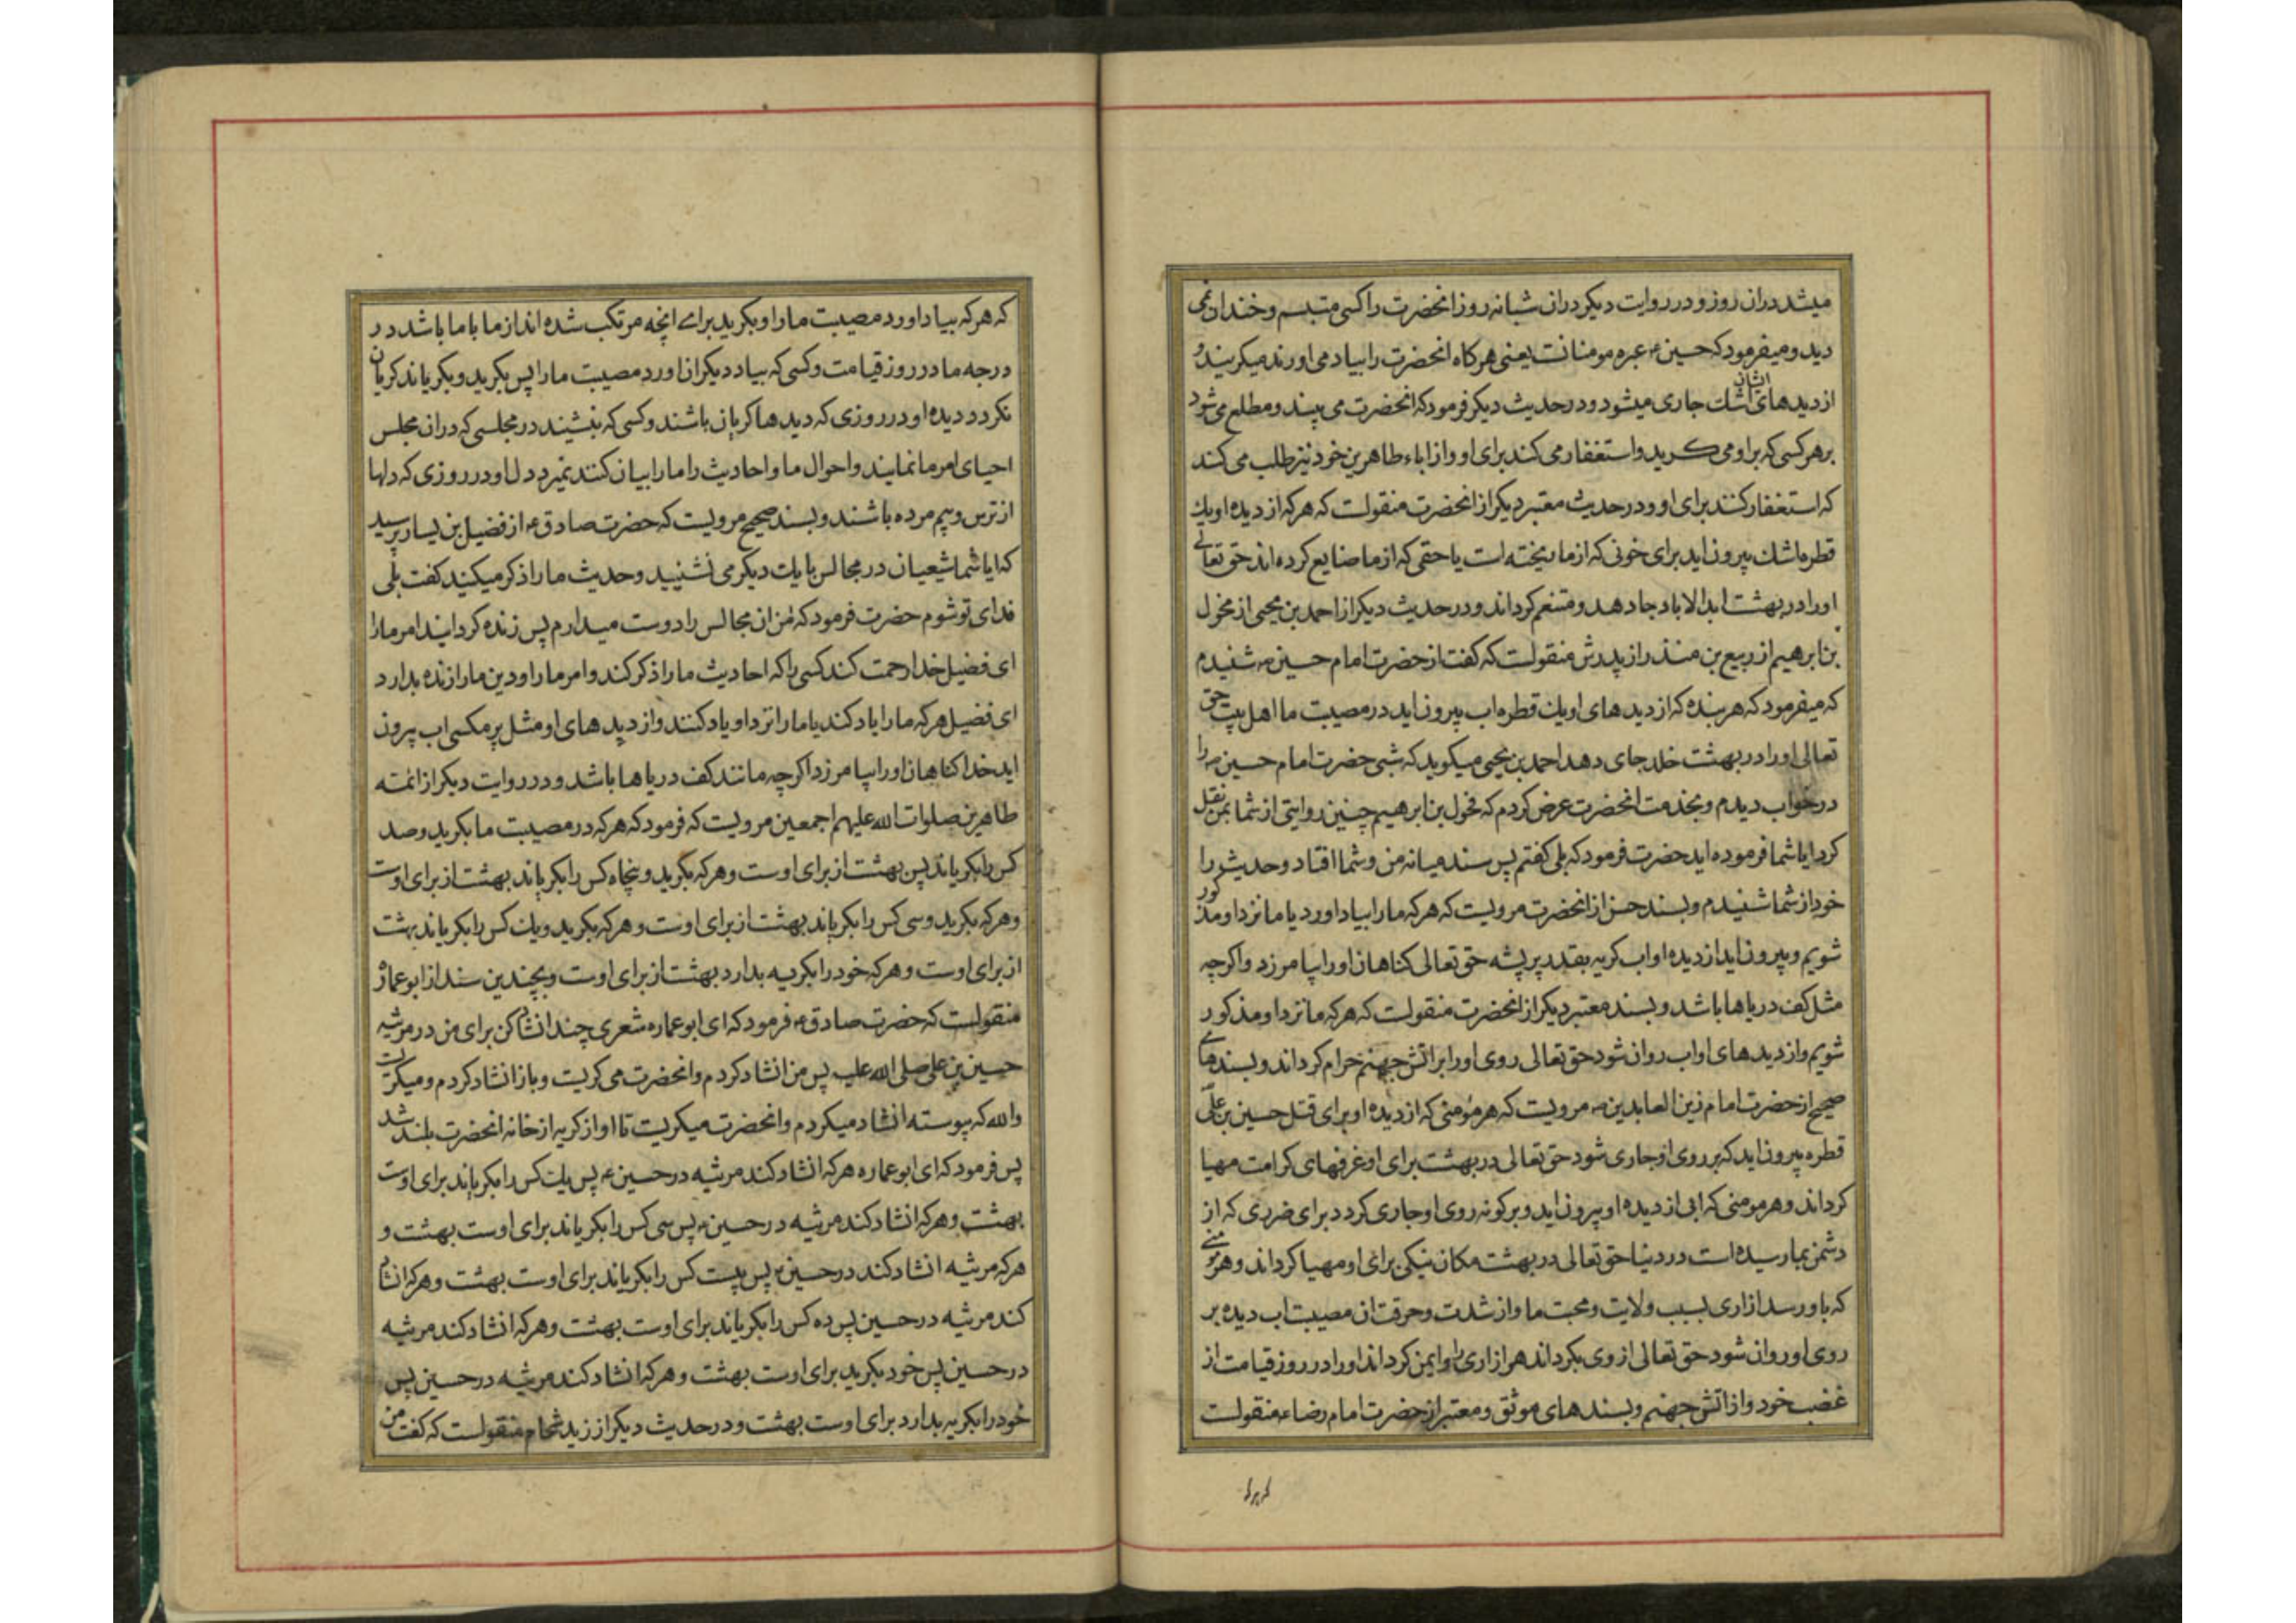 میشد دران روز و در روایت دیکر دران شبانه روز انحضرت را کسی متبسم و خندان نمی
دید و میفرمود که حسین ع عبره مومنانست یعنی هرکاه انحضرت را بیاد می اورند میکریند و
از دیدهای ایشان اشك جاری میشود و در حدیث دیکر فرمود که انحضرت می بیند و مطلع می شود
بر هر کسی که بر او می کرید و استغفار می کند برای او و از اباء طاهرین خود نیز طلب می کند
که استغفار کنند برای او و در حدیث معتبر دیکر از انحضرت منقولست که هر که از دیده او یك
قطره اشك بیرون اید برای خونی که از ما ریخته است یا حقی که از ما ضایع کرده اند حق تعالی
او را در بهشت ابد الاباد جا دهد و متنعم کرداند و در حدیث دیکر از احمد بن یحیی از مخول
بن ابرهیم از ربیع بن منذر از پدرش منقولست که کفت از حضرت امام حسین ع شنیدم
که میفرمود که هر بنده که از دیدهای او یك قطره اب بیرون اید در مصیبت ما اهل بیت حق
تعالی او را در بهشت خلد جای دهد احمد بن یحیی میکوید که شبی حضرت امام حسین ع را
در خواب دیدم و بخدمت انحضرت عرض کردم که مخول بن ابرهیم چنین روایتی از شما بمن نقل
کرد ایا شما فرموده اید حضرت فرمود که بلی کفتم پس سند میانه من و شما افتاد و حدیث را
خود از شما شنیدم و بسند حسن از انحضرت مرویست که هر که ما را بیاد اورد یا ما نزد او مذکور
شویم و بیرون اید از دیده او اب کریه بقدر پر پشه حق تعالی کناهان او را بیامرزد و اکرچه
مثل کف دریاها باشد و بسند معتبر دیکر از انحضرت منقولست که هر که ما نزد او مذکور
شویم و از دیدهای او اب روان شود حق تعالی روی او را بر اتش جهنم حرام کرداند و بسندهای
صحیح از حضرت امام زین العابدین ع مرویست که هر مؤمنی که از دیده او برای قتل حسین بن علی
قطره بیرون اید که بر روی او جاری شود حق تعالی در بهشت برای او غرفهای کرامت مهیا
کرداند و هر مومنی که ابی از دیده او بیرون اید و بر کونه روی او جاری کردد برای ضرری که از
دشمن بما رسیده است در دنیا حق تعالی در بهشت مکان نیکی برای او مهیا کرداند و هر مؤمنی
که باو رسد ازاری بسبب ولایت و محبت ما و از شدت و حرقت ان مصیبت اب دیده بر
روی او روان شود حق تعالی از وی بکرداند هر ازاری را و ایمن کرداند او را در روز قیامت از
غضب خود و از اتش جهنم و بسندهای موثق و معتبر از حضرت امام رضا ع منقولست
که هر که
که هر که بیاد اورد مصیبت ما را و بکرید برای انچه مرتکب شده اند از ما با ما باشد در
درجه ما در روز قیامت و کسی که بیاد دیکران اورد مصیبت ما را پس بکرید و بکریاند کریان
نکردد دیده او در روزی که دیدها کریان باشند و کسی که بنشیند در مجلسی که دران مجلس
احیای امر ما نمایند و احوال ما و احادیث را ما را بیان کنند نمیرد دل او در روزی که دلها
از ترس و بیم مرده باشند و بسند صحیح مرویست که حضرت صادق ع از فضیل بن یسار پرسید
که ایا شما شیعیان در مجالس با یك دیکر می نشینید و حدیث ما را ذکر میکنید کفت بلی
فدای تو شوم حضرت فرمود که من ان مجالس را دوست میدارم پس زنده کردانید امر ما را
ای فضیل خدا رحمت کند کسی را که احادیث ما را ذکر کند و امر ما را و دین ما را زنده بدارد
ای فضیل هر که ما را یاد کند یا ما را نزد او یاد کنند و از دیدهای او مثل پر مکسی اب بیرون
اید خدا کناهان او را بیامرزد اکرچه مانند کف دریاها باشد و در روایت دیکر از ائمه
طاهرین صلوات الله علیهم اجمعین مرویست که فرمود که هر که در مصیبت ما بکرید و صد
کس را بکریاند پس بهشت از برای اوست و هر که بکرید و پنجاه کس را بکریاند بهشت از برای اوست
و هر که بکرید و سی کس را بکریاند بهشت از برای اوست و هر که بکرید و یك کس را بکریاند بهشت
از برای اوست و هر که خود را بکریه بدارد بهشت از برای اوست و بچندین سند از ابو عماره
منقولست که حضرت صادق ع فرمود که ای ابو عماره شعری چند انشاد کن برای من در مرثیه
حسین بن علی صلی الله علیه پس من انشاد کردم و انحضرت می کریست و باز انشاد کردم و میکریست
والله که پیوسته انشاد میکردم و انحضرت میکریست تا اواز کریه از خانه انحضرت بلند شد
پس فرمود که ای ابو عماره هر که انشاد کند مرثیه در حسین ع پس یك کس را بکریاند برای اوست
بهشت و هر که انشاد کند مرثیه در حسین ع پس سی کس را بکریاند برای اوست بهشت و
هر که مرثیه انشاد کند در حسین ع پس بیست کس را بکریاند برای اوست بهشت و هر که انشاد
کند مرثیه در حسین پس ده کس را بکریاند برای اوست بهشت و هر که انشاد کند مرثیه
در حسین پس خود بکرید برای اوست بهشت و هر که انشاد کند مرثیه در حسین پس
خود را بکریه بدارد برای اوست بهشت و در حدیث دیکر از زید شحام منقولست که کفت من